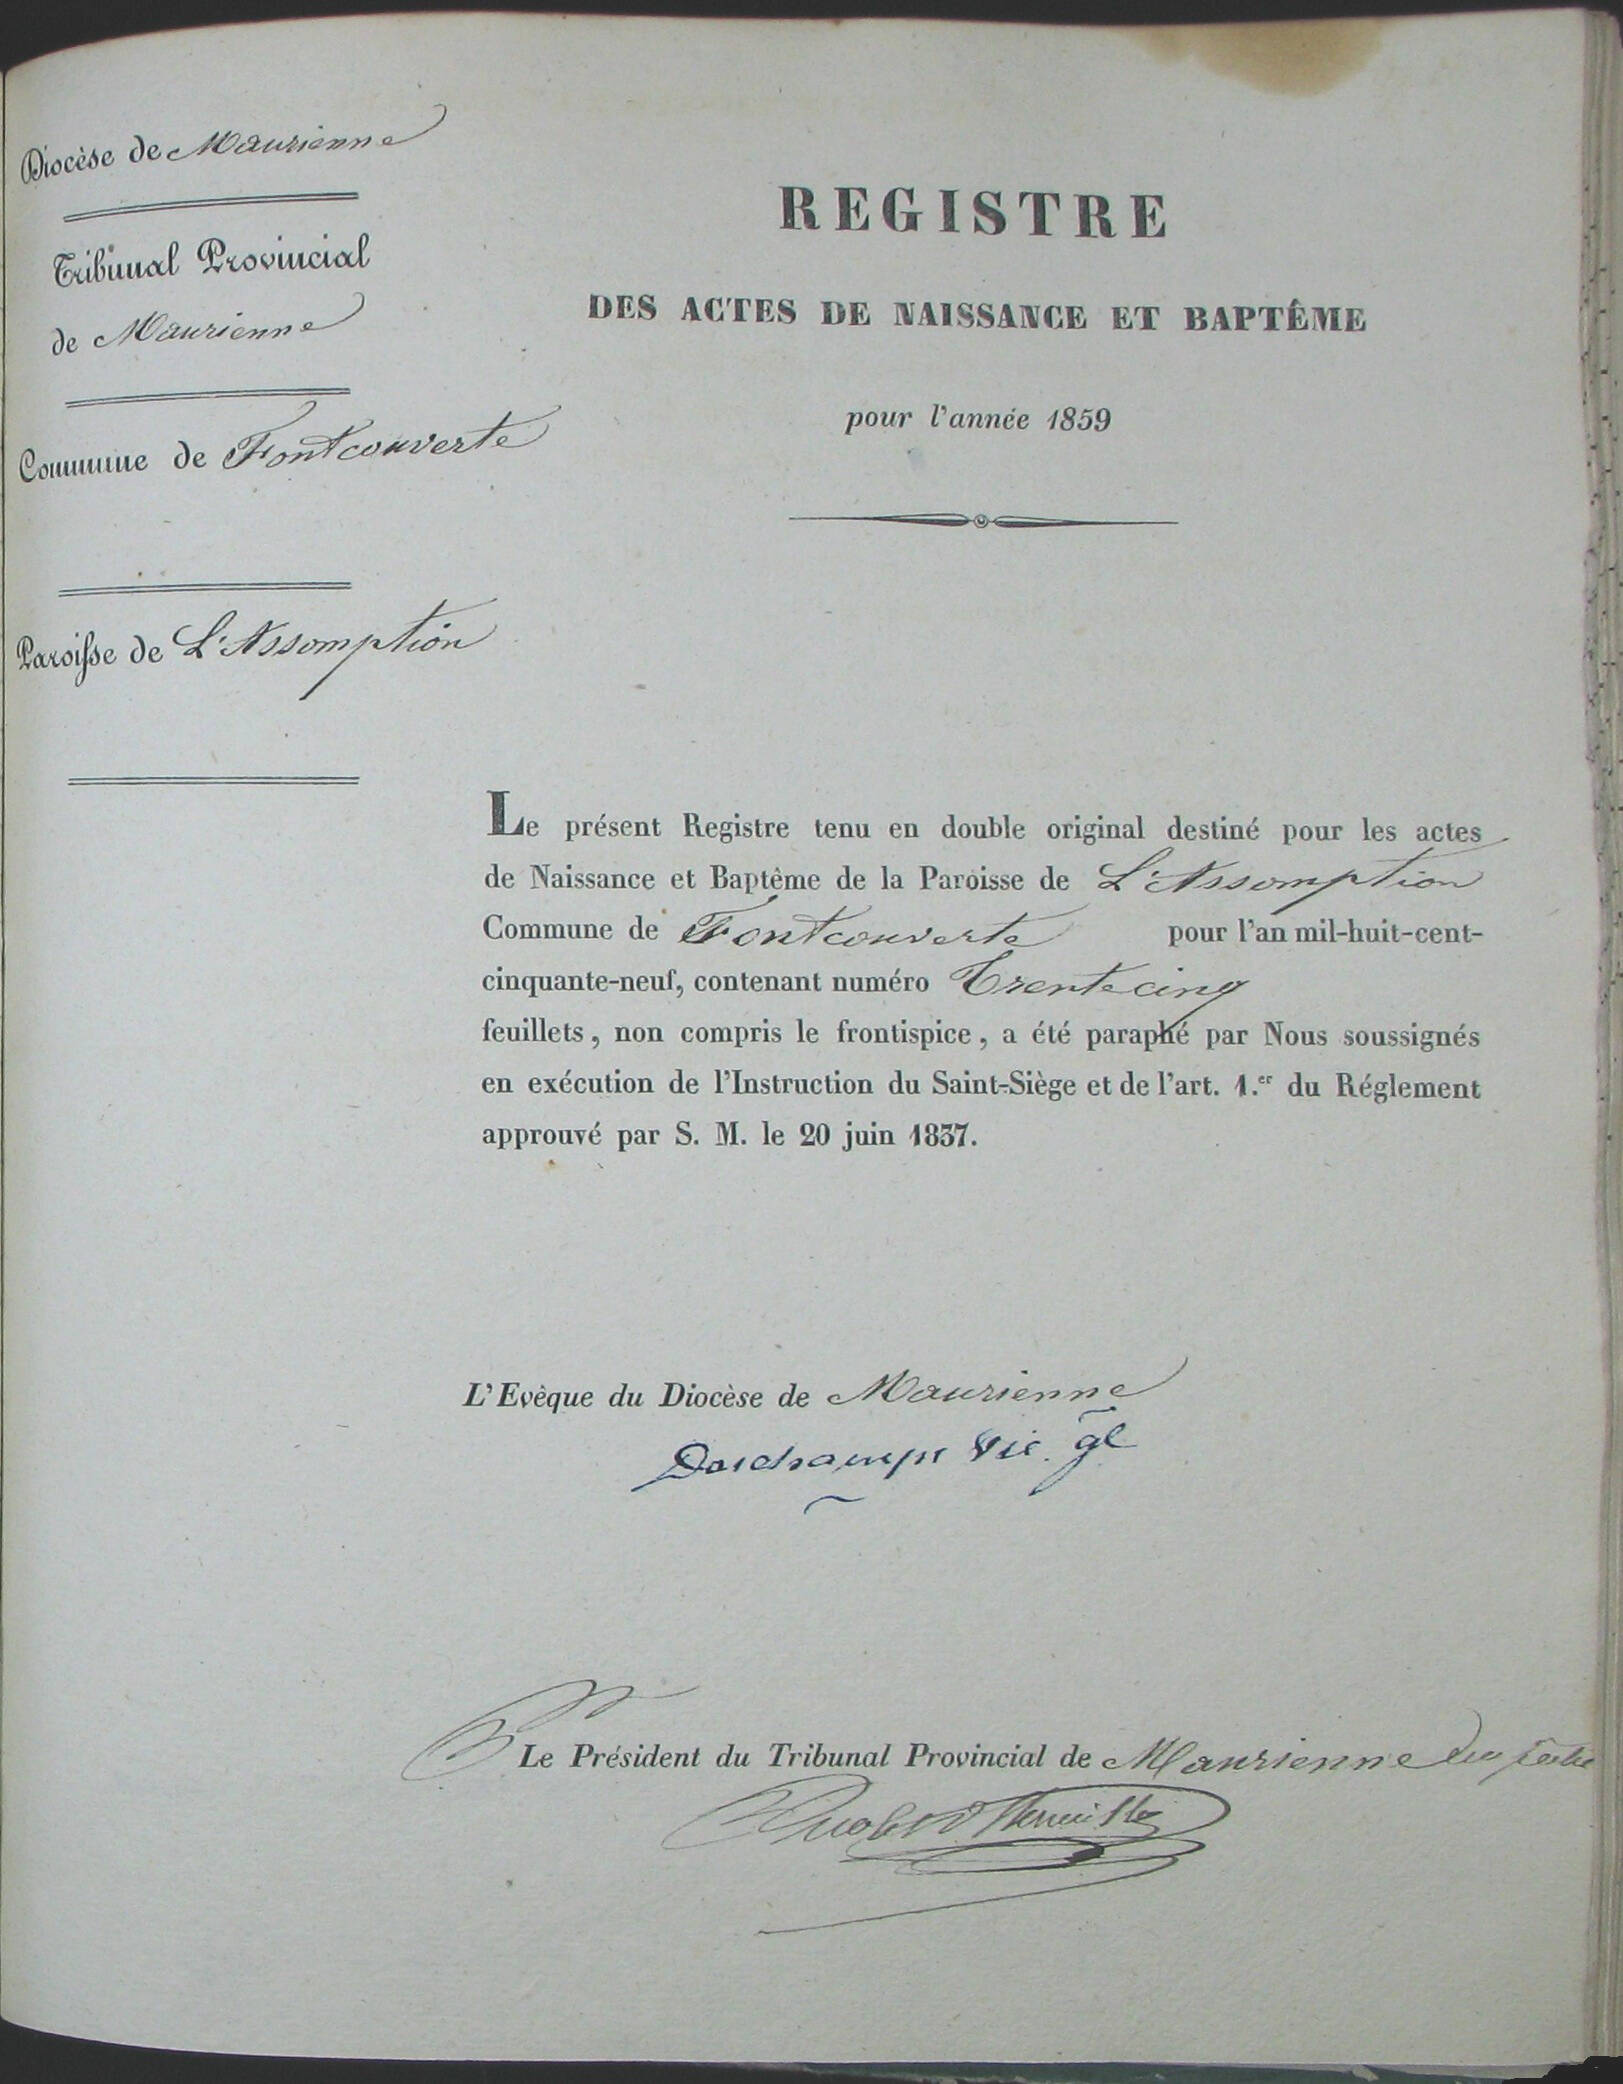 Diocèse de Maurienne
Tribunal Provincial
de Maurienne
Commune de Fontcouverte
Paroisse de L'Assomption
REGISTRE
DES ACTES DE NAISSANCE ET BAPTÊME
pour l'année 1859
Le présent Registre tenu en double original destiné pour les actes
de Naissance et Baptême de la Paroisse de L'Assomption
Commune de Fontcouverte pour l'an mil-huit-cent-
cinquante-neuf, contenant numéro Trente cinq
feuillets, non compris le frontispice, a été paraphé par Nous soussignés
en exécution de l'Instruction du Saint-Siège et de l'art. 1.er du Réglement
approuvé par S. M. le 20 juin 1837.
L'Evêque du Diocèse de Maurienne
Deschamps Vic. gl
Le Président du Tribunal Provincial de Maurienne